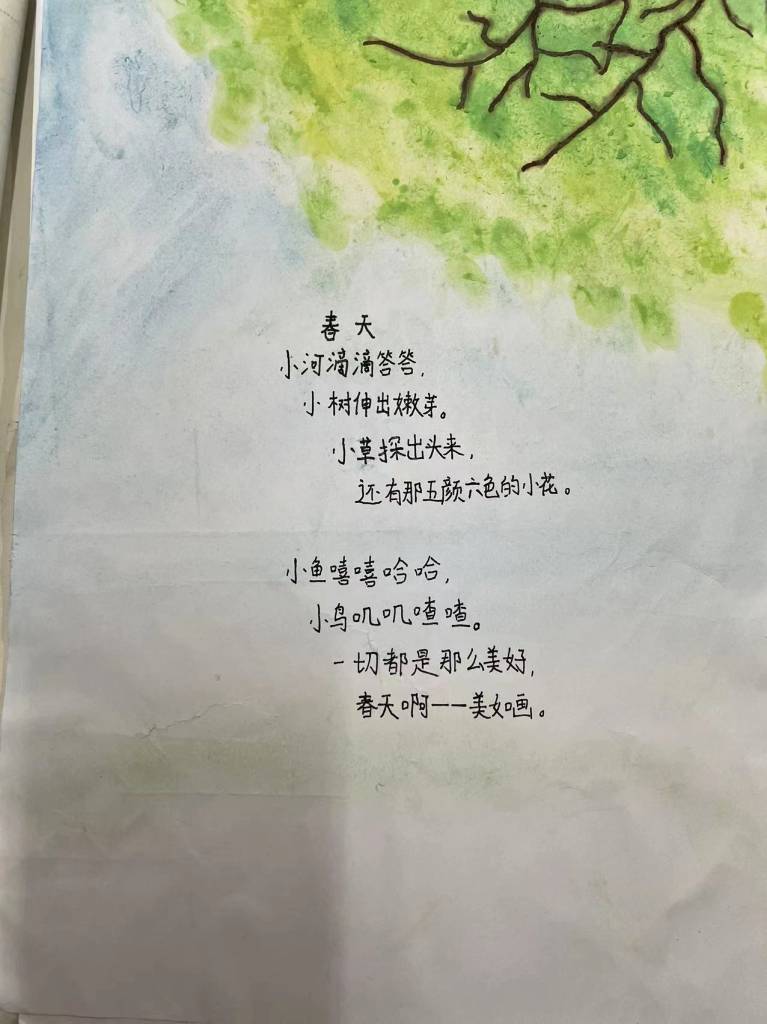 春天
小河滴滴答答，
小树伸出嫩芽。
小草探出头来，
还有那五颜六色的小花。
小鱼嘻嘻哈哈，
小鸟叽叽喳喳。
一切都是那么美好，
春天啊——美如画。